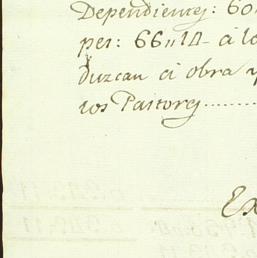 Dependientes: 60
pes: 66 11 14 - a lo
duzcan a obra y
los Pastores..........
Ex